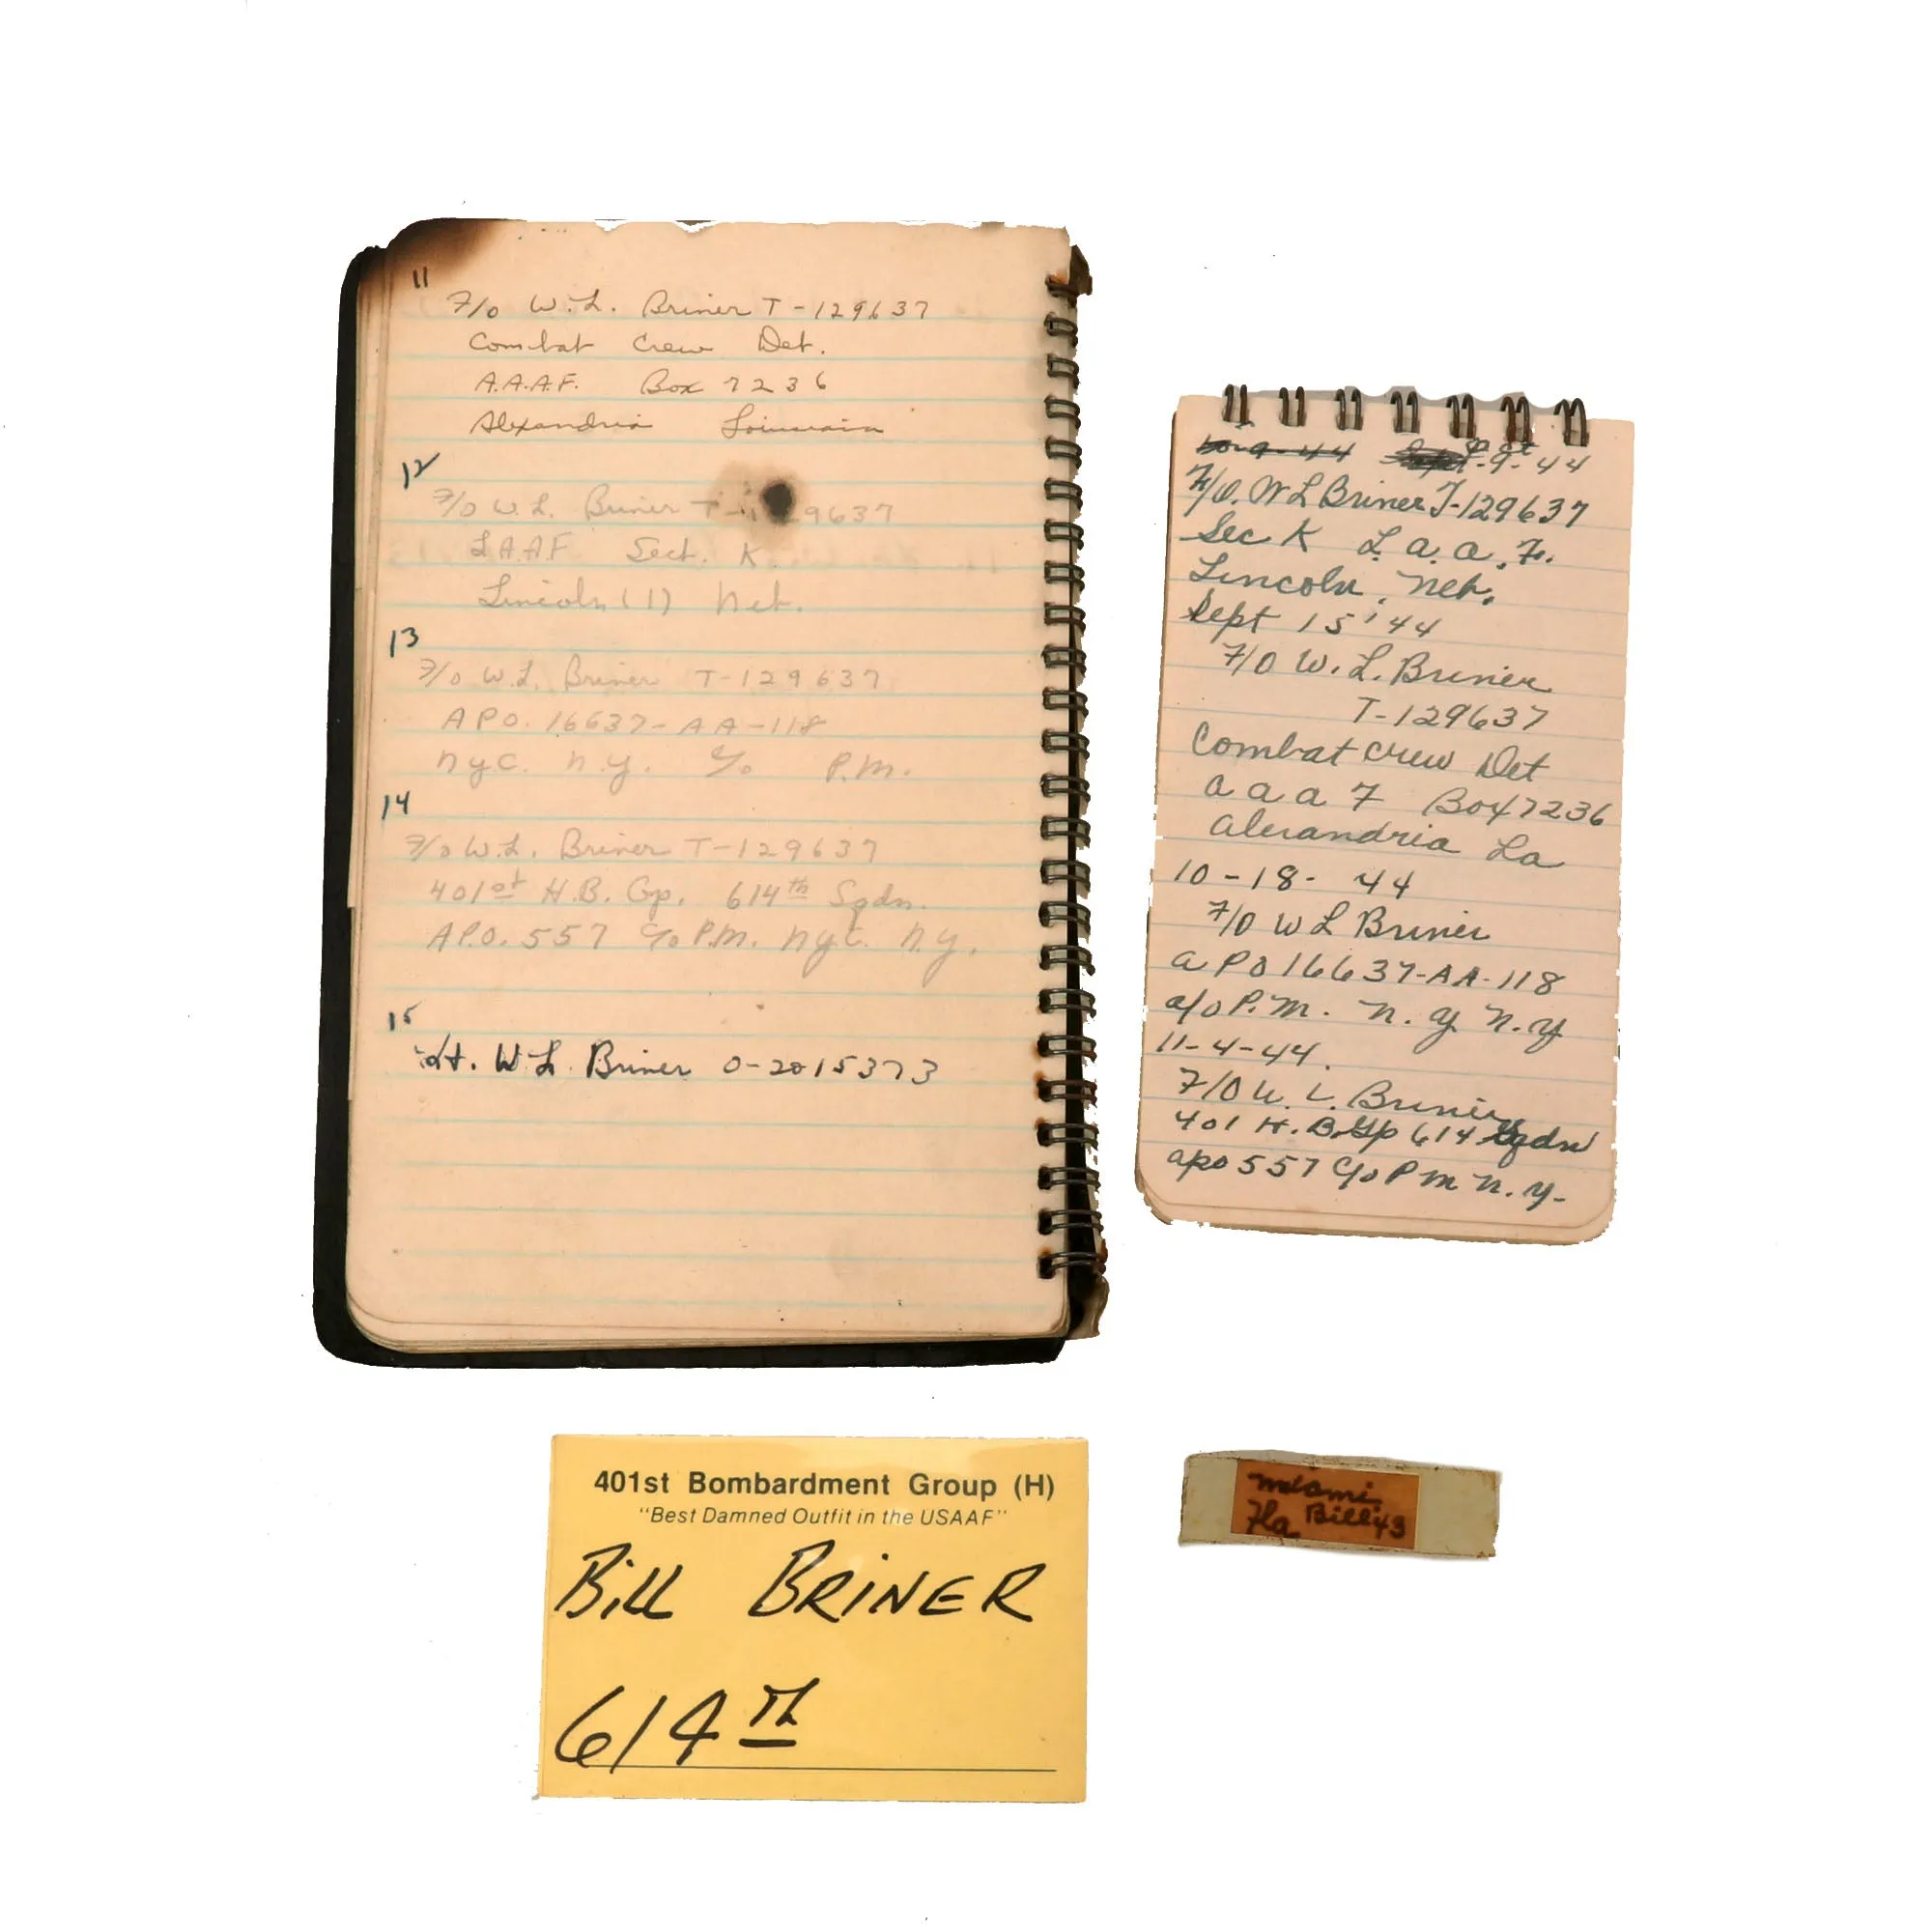 11
F/O W.L. Briner T-129637
Combat Crew Det.
A.A.A.F. Box 7236
Alexandria Loiusiain
12
F/O W.L. Briner T-129637
LAAF Sect. K
Lincoln (1) Neb.
13
F/O W.L. Briner T-129637
APO. 16637-AA-118
NYC. N.Y. c/o P.M.
14
F/O W.L. Briner T-129637
401st H.B. Gp. 614th Sqdn.
A.P.O. 557 c/o P.M. NYC. N.Y.
15
Lt. W L Briner O-2015373
9-44
F/O. W L Briner T-129637
Sec K L.a.a.F.
Lincoln, Neb.
Sept 15 '44
F/O W. L. Briner
T-129637
Combat Crew Det
aaaF Box 7236
Alexandria La
10-18-44
F/O W L Briner
aPO 16637-AA-118
c/o P.M. N.Y N.Y
11-4-44.
F/O W. L. Briner
401 H.B.Gp 614 Sqdn
apo 557 c/o P M N.Y-
401st Bombardment Group (H)
"Best Damned Outfit in the USAAF"
Bill BRINER
614th
Miami
Fla Bill 43